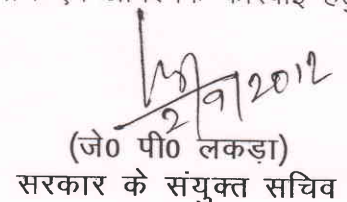 2/9/2012
(जे0 पी0 लकड़ा)
सरकार के संयुक्त सचिव